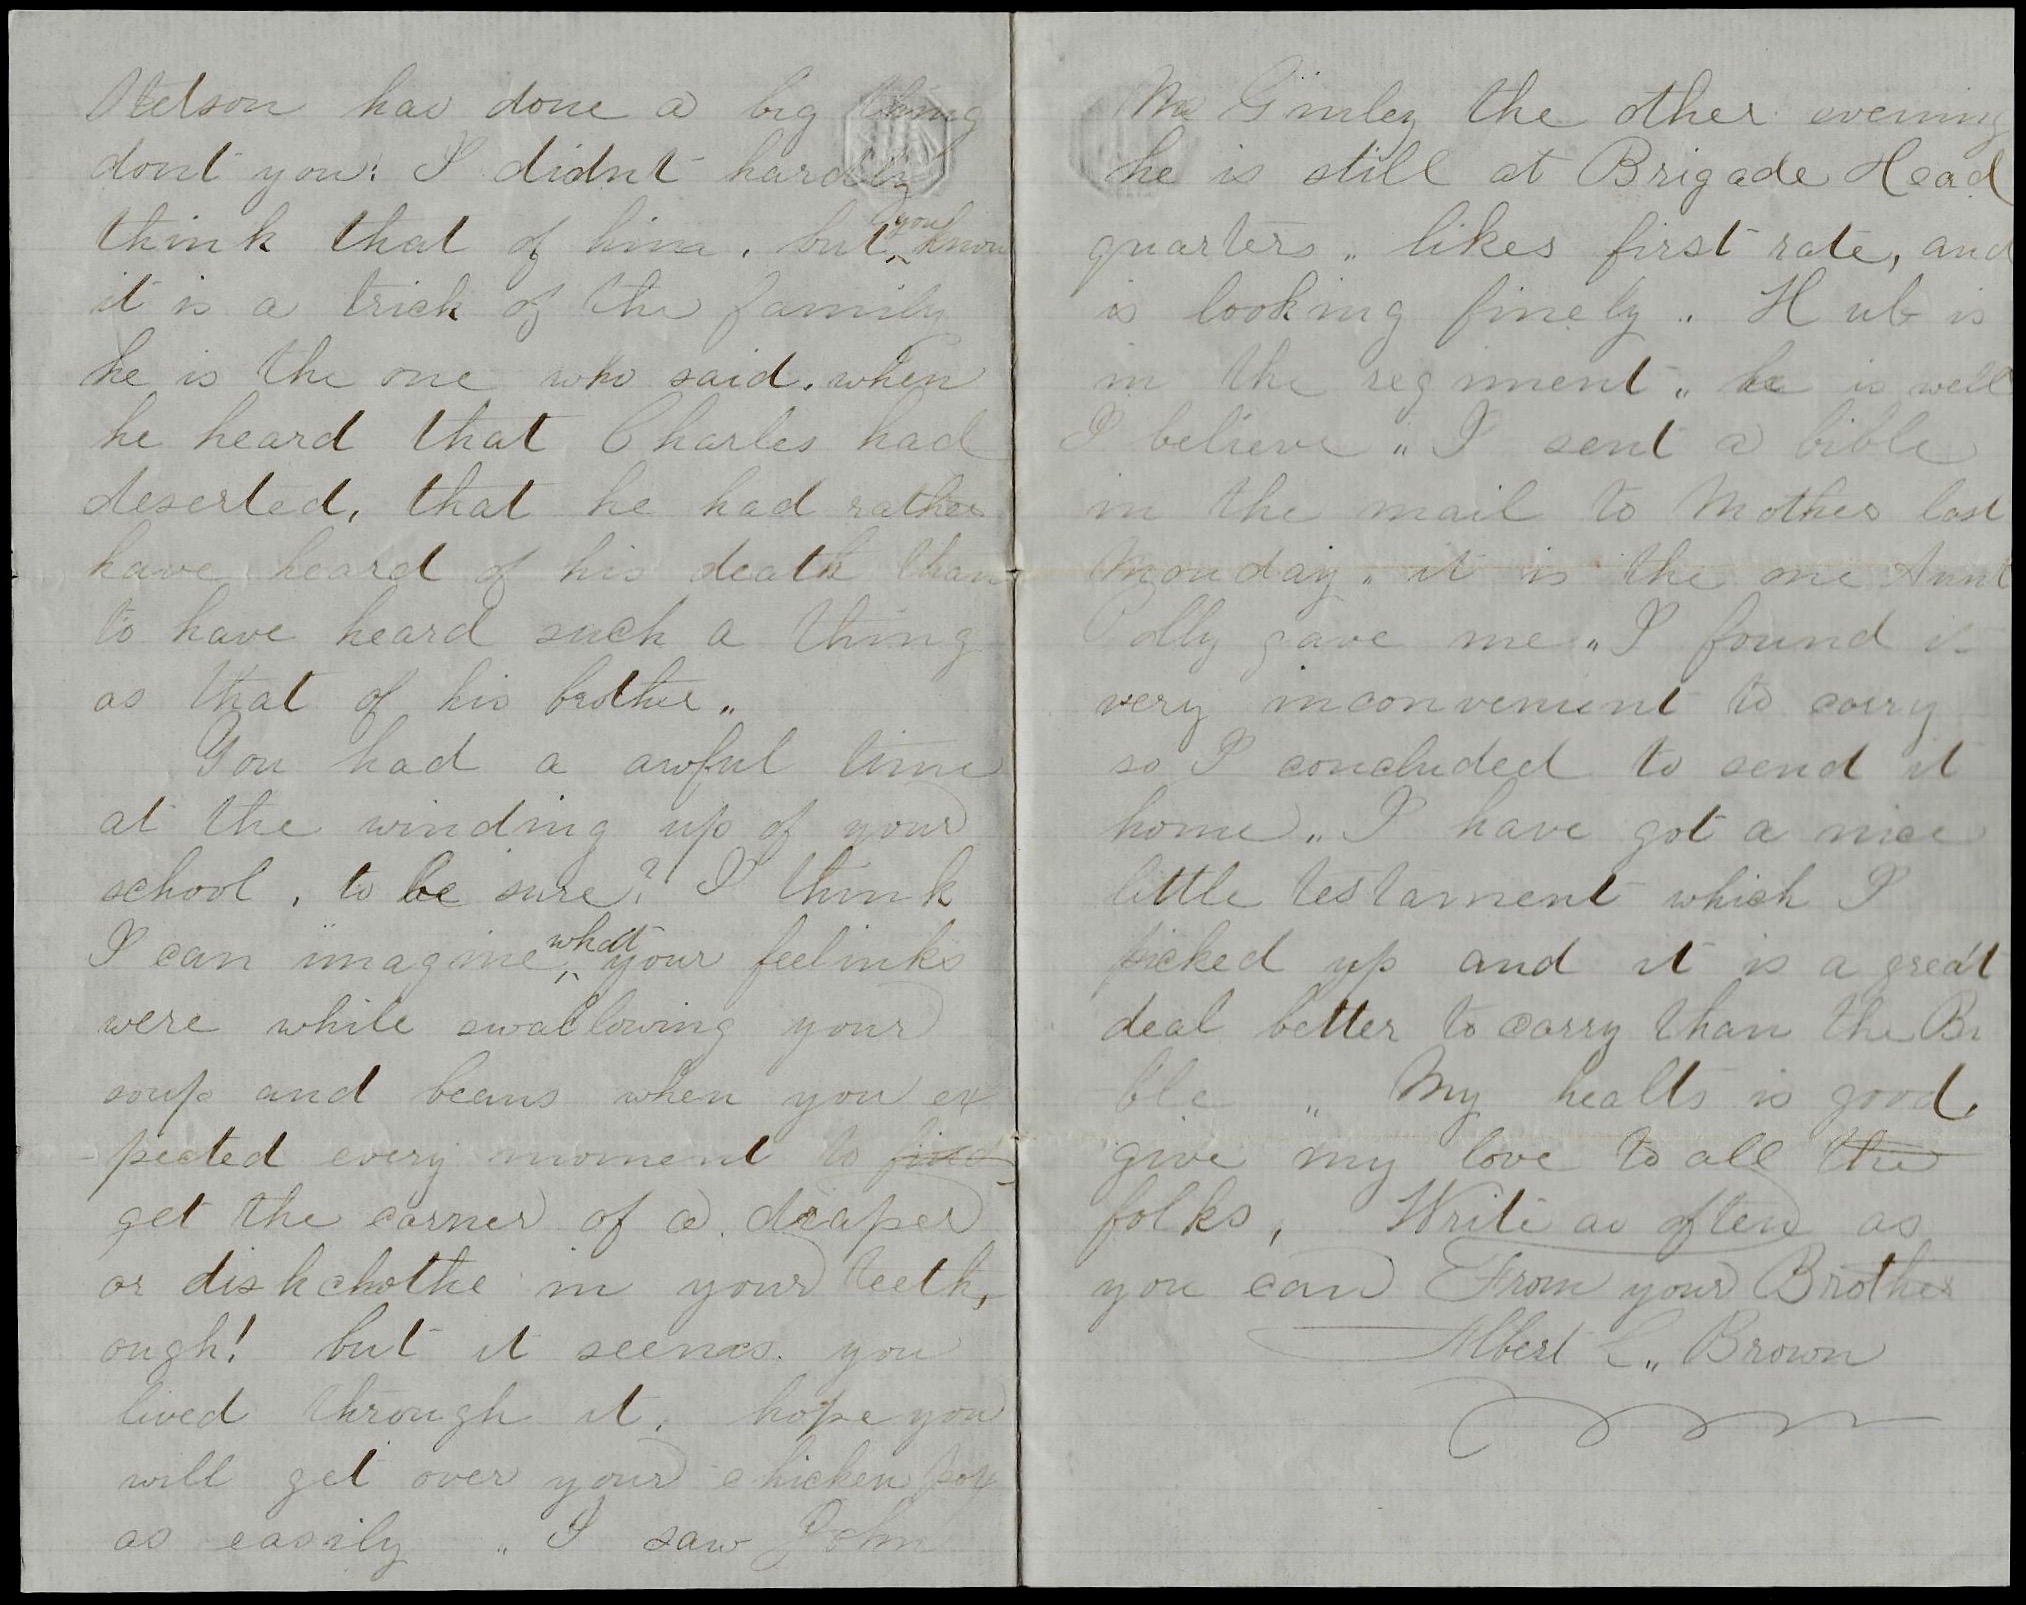 Stetson has done a big thing
dont you? I didnt hardly
think that of him. but you know
it is a trick of the family
he is the one who said. when
he heard that Charles had
deserted, that he had rather
have heard of his death than
to have heard such a thing
as that of his brother„
You had a awful time
at the winding up of your
school, to be sure? I think
I can imagine what your feelinks
were while swallowing your
soup and beans when you ex
pected every moment to find
get the corner of a diaper
or dishchothe in your teeth,
ough! but it seems you
lived through it. hope you
will get over your chicken pox
as easily „ I saw John
Mc Ginley the other evening
he is still at Brigade Head
quarters„ likes first rate, and
is looking finely„ Hub is
in the regiment„ he is well
I believe„ I sent a bible
in the mail to Mother last
Monday„ it is the one Aunt
Polly gave me„ I found it
very inconvenient to carry
so I concluded to send it
home„ I have got a nice
little testament which I
picked up and it is a great
deal better to carry than the Bi
ble „ My healts is good.
give my love to all the
folks, Write as often as
you can From your Brother
Albert L„ Brown